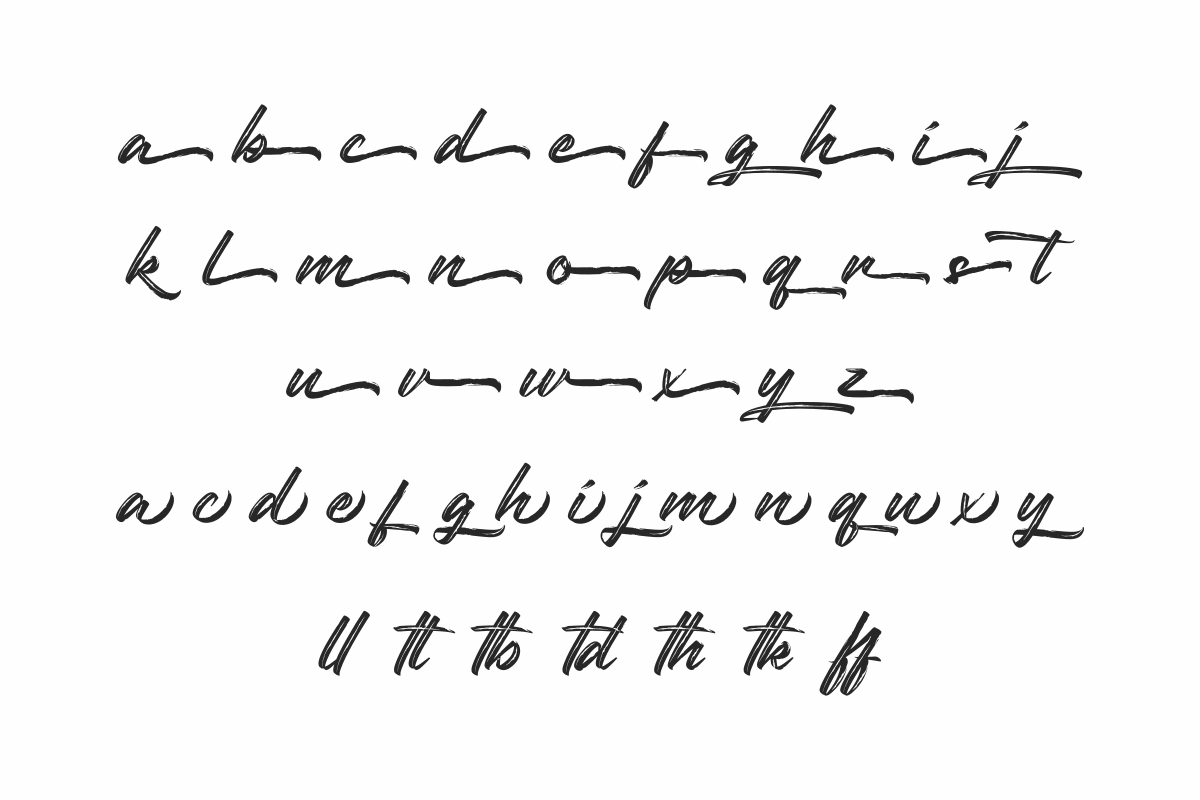 a b c d e f g h i j
k l m n o p q r s t
u v w x y z
a c d e f g h i j m n q u x y
ll tt tb td th tk ff